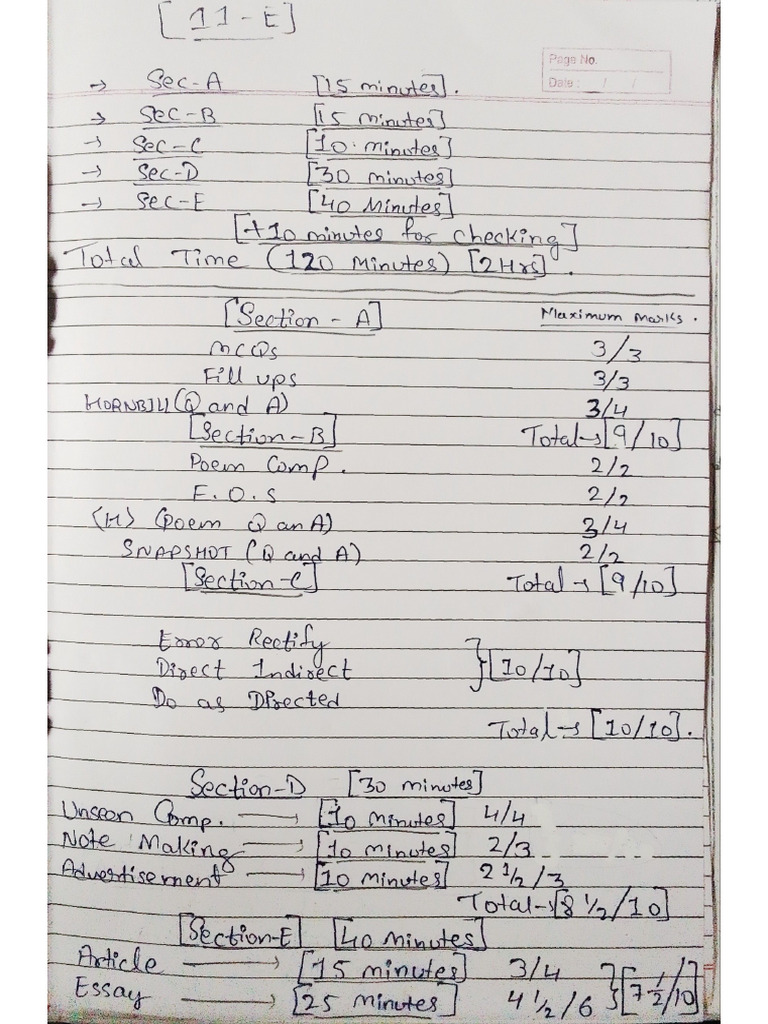 [11-E]
Page No.
Date: / /
→ Sec-A [15 minutes].
→ Sec-B [15 minutes]
→ Sec-C [10 minutes]
→ Sec-D [30 minutes]
→ Sec-E [40 Minutes]
[+10 minutes for checking]
Total Time (120 minutes) [2Hrs].
[Section-A] Maximum Marks.
MCQs 3/3
Fill ups 3/3
HORNBILL (Q and A) 3/4
[Section-B] Total→[9/10]
Poem Comp. 2/2
F.O.S 2/2
(H) (Poem Q an A) 3/4
SNAPSHOT (Q and A) 2/2
[Section-C] Total→[9/10]
Error Rectify
Direct Indirect }[10/10]
Do as Directed
Total→[10/10].
Section-D [30 minutes]
Unseen Comp. → [10 minutes] 4/4
Note Making → [10 minutes] 2/3
Advertisement → [10 minutes] 2 1/2/3
Total→[8 1/2/10]
[Section-E] [40 minutes]
Article → [15 minutes] 3/4
Essay → [25 minutes] 4 1/2/6 }[7 1/2/10]